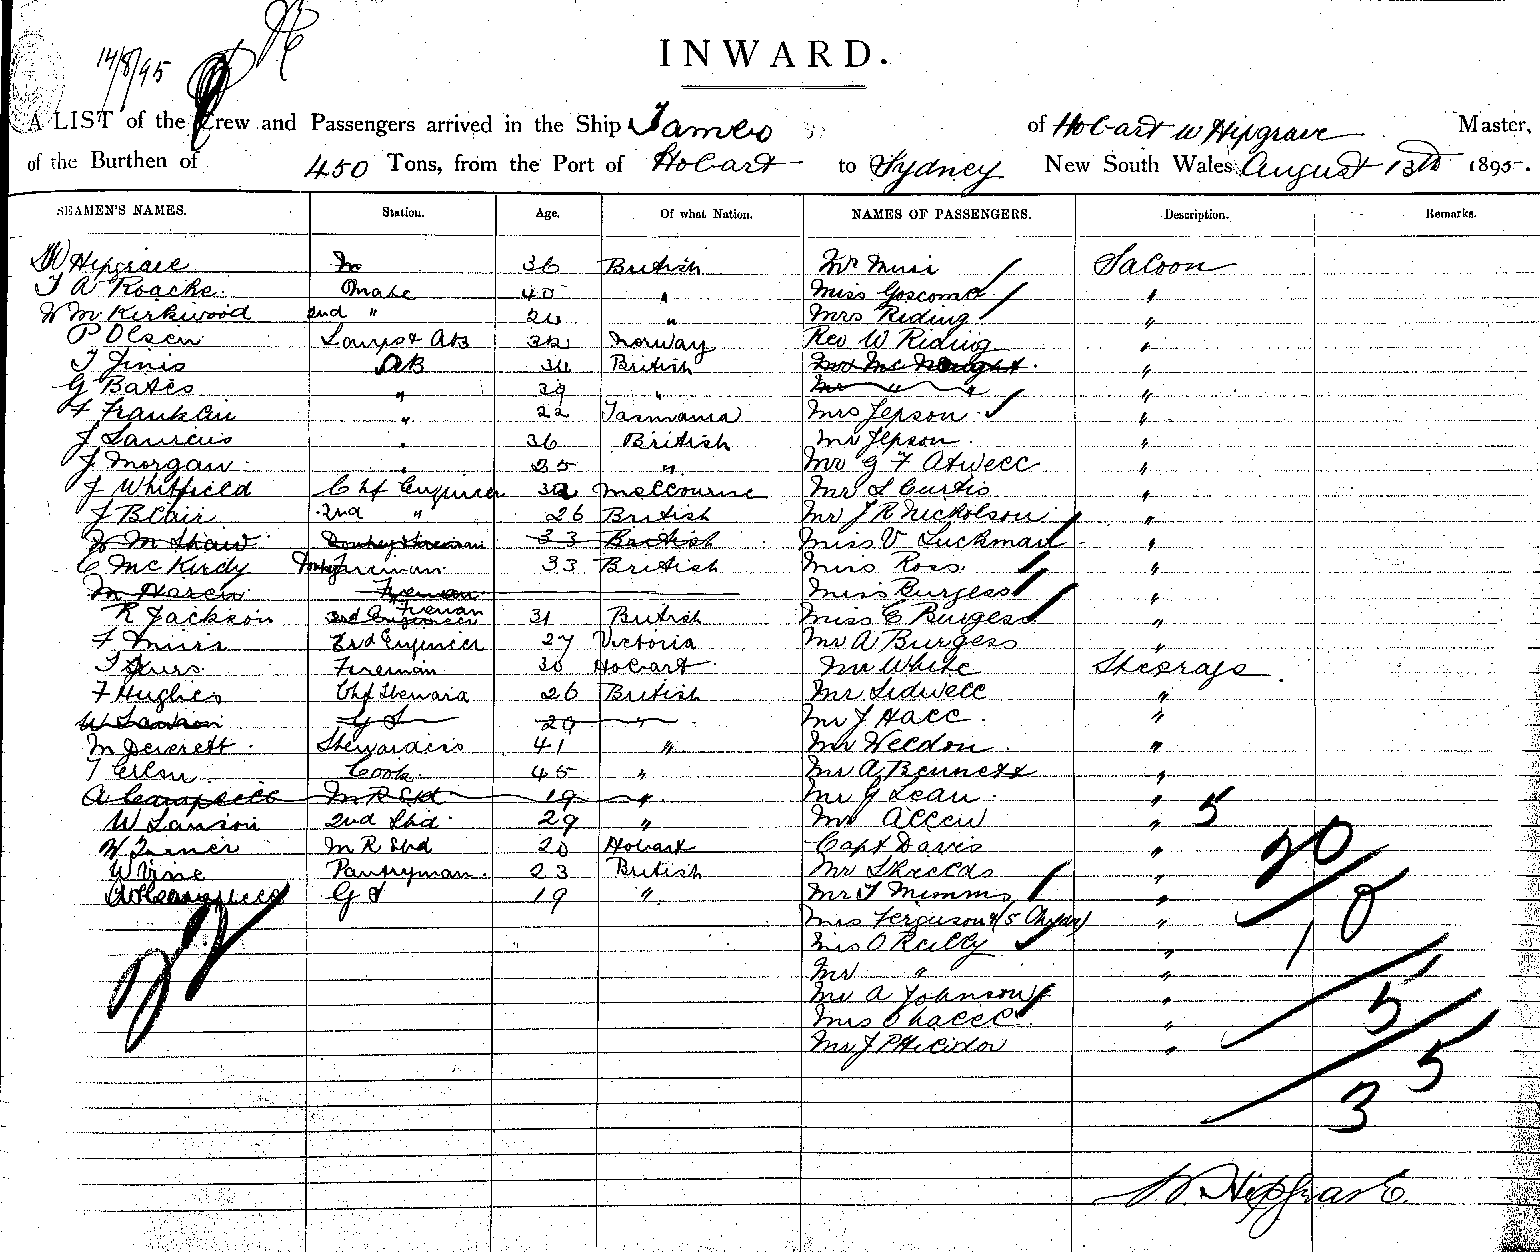 14/8/95
INWARD.
A LIST of the Crew and Passengers arrived in the Ship James of Hobart W Hipgrave Master,
of the Burthen of 450 Tons, from the Port of Hobart to Sydney New South Wales, August 13th 1895.
SEAMEN'S NAMES. Station. Age. Of what Nation. NAMES OF PASSENGERS. Description. Remarks.
W Hipgrave M 36 British Mr Muir Saloon
T A Roache Mate 40 " Miss "
W M Kirkwood 2nd " " Mrs Riding "
P Olsen Lamps & AB Norway Rev W Riding "
T AB British Mrs Mc Naught "
G Bates " 39 " Mr " " "
F Franklin " 22 Tasmania Mrs Jepson "
J " 36 British Mr Jepson "
J Morgan " 25 " Mr G F Atwell "
J Whitfield Chf Engineer Melbourne Mr S Curtis "
J Blair 2nd " 26 British Mr J R Nickolson "
W M Shaw Donkey Fireman 33 British Miss V Luckman "
C McKirdy Fireman 33 British Miss Ross "
M Fireman Miss Burgess "
R Jackson 3rd Engineer Fireman 31 British Miss E Burgess "
F 3rd Engineer 27 Victoria Mr A Burgess "
T Fireman 30 Hobart Mr White Steerage
F Hughes Chf Steward 26 British Mr Sidwell "
W G S 29 " Mr J Hall "
M Stewardess 41 " Mr Weldon "
T Cook 45 " Mr A Bennett "
A Campbell M R Std 19 " Mr G Lean "
W Lanson 2nd Std 29 " Mr Allen " 5
W Turner M R Std 20 Hobart Capt Davis " 20
W Vine Pantryman 23 British Mr Shields "
A Campbell G S 19 " Mr T Mimms " 10
Mrs Ferguson & (5 "
Mrs O Reilly "
Mr " "
Mr A Johnson " 5
Mrs "
Mr J "
35
W. Hipgrave